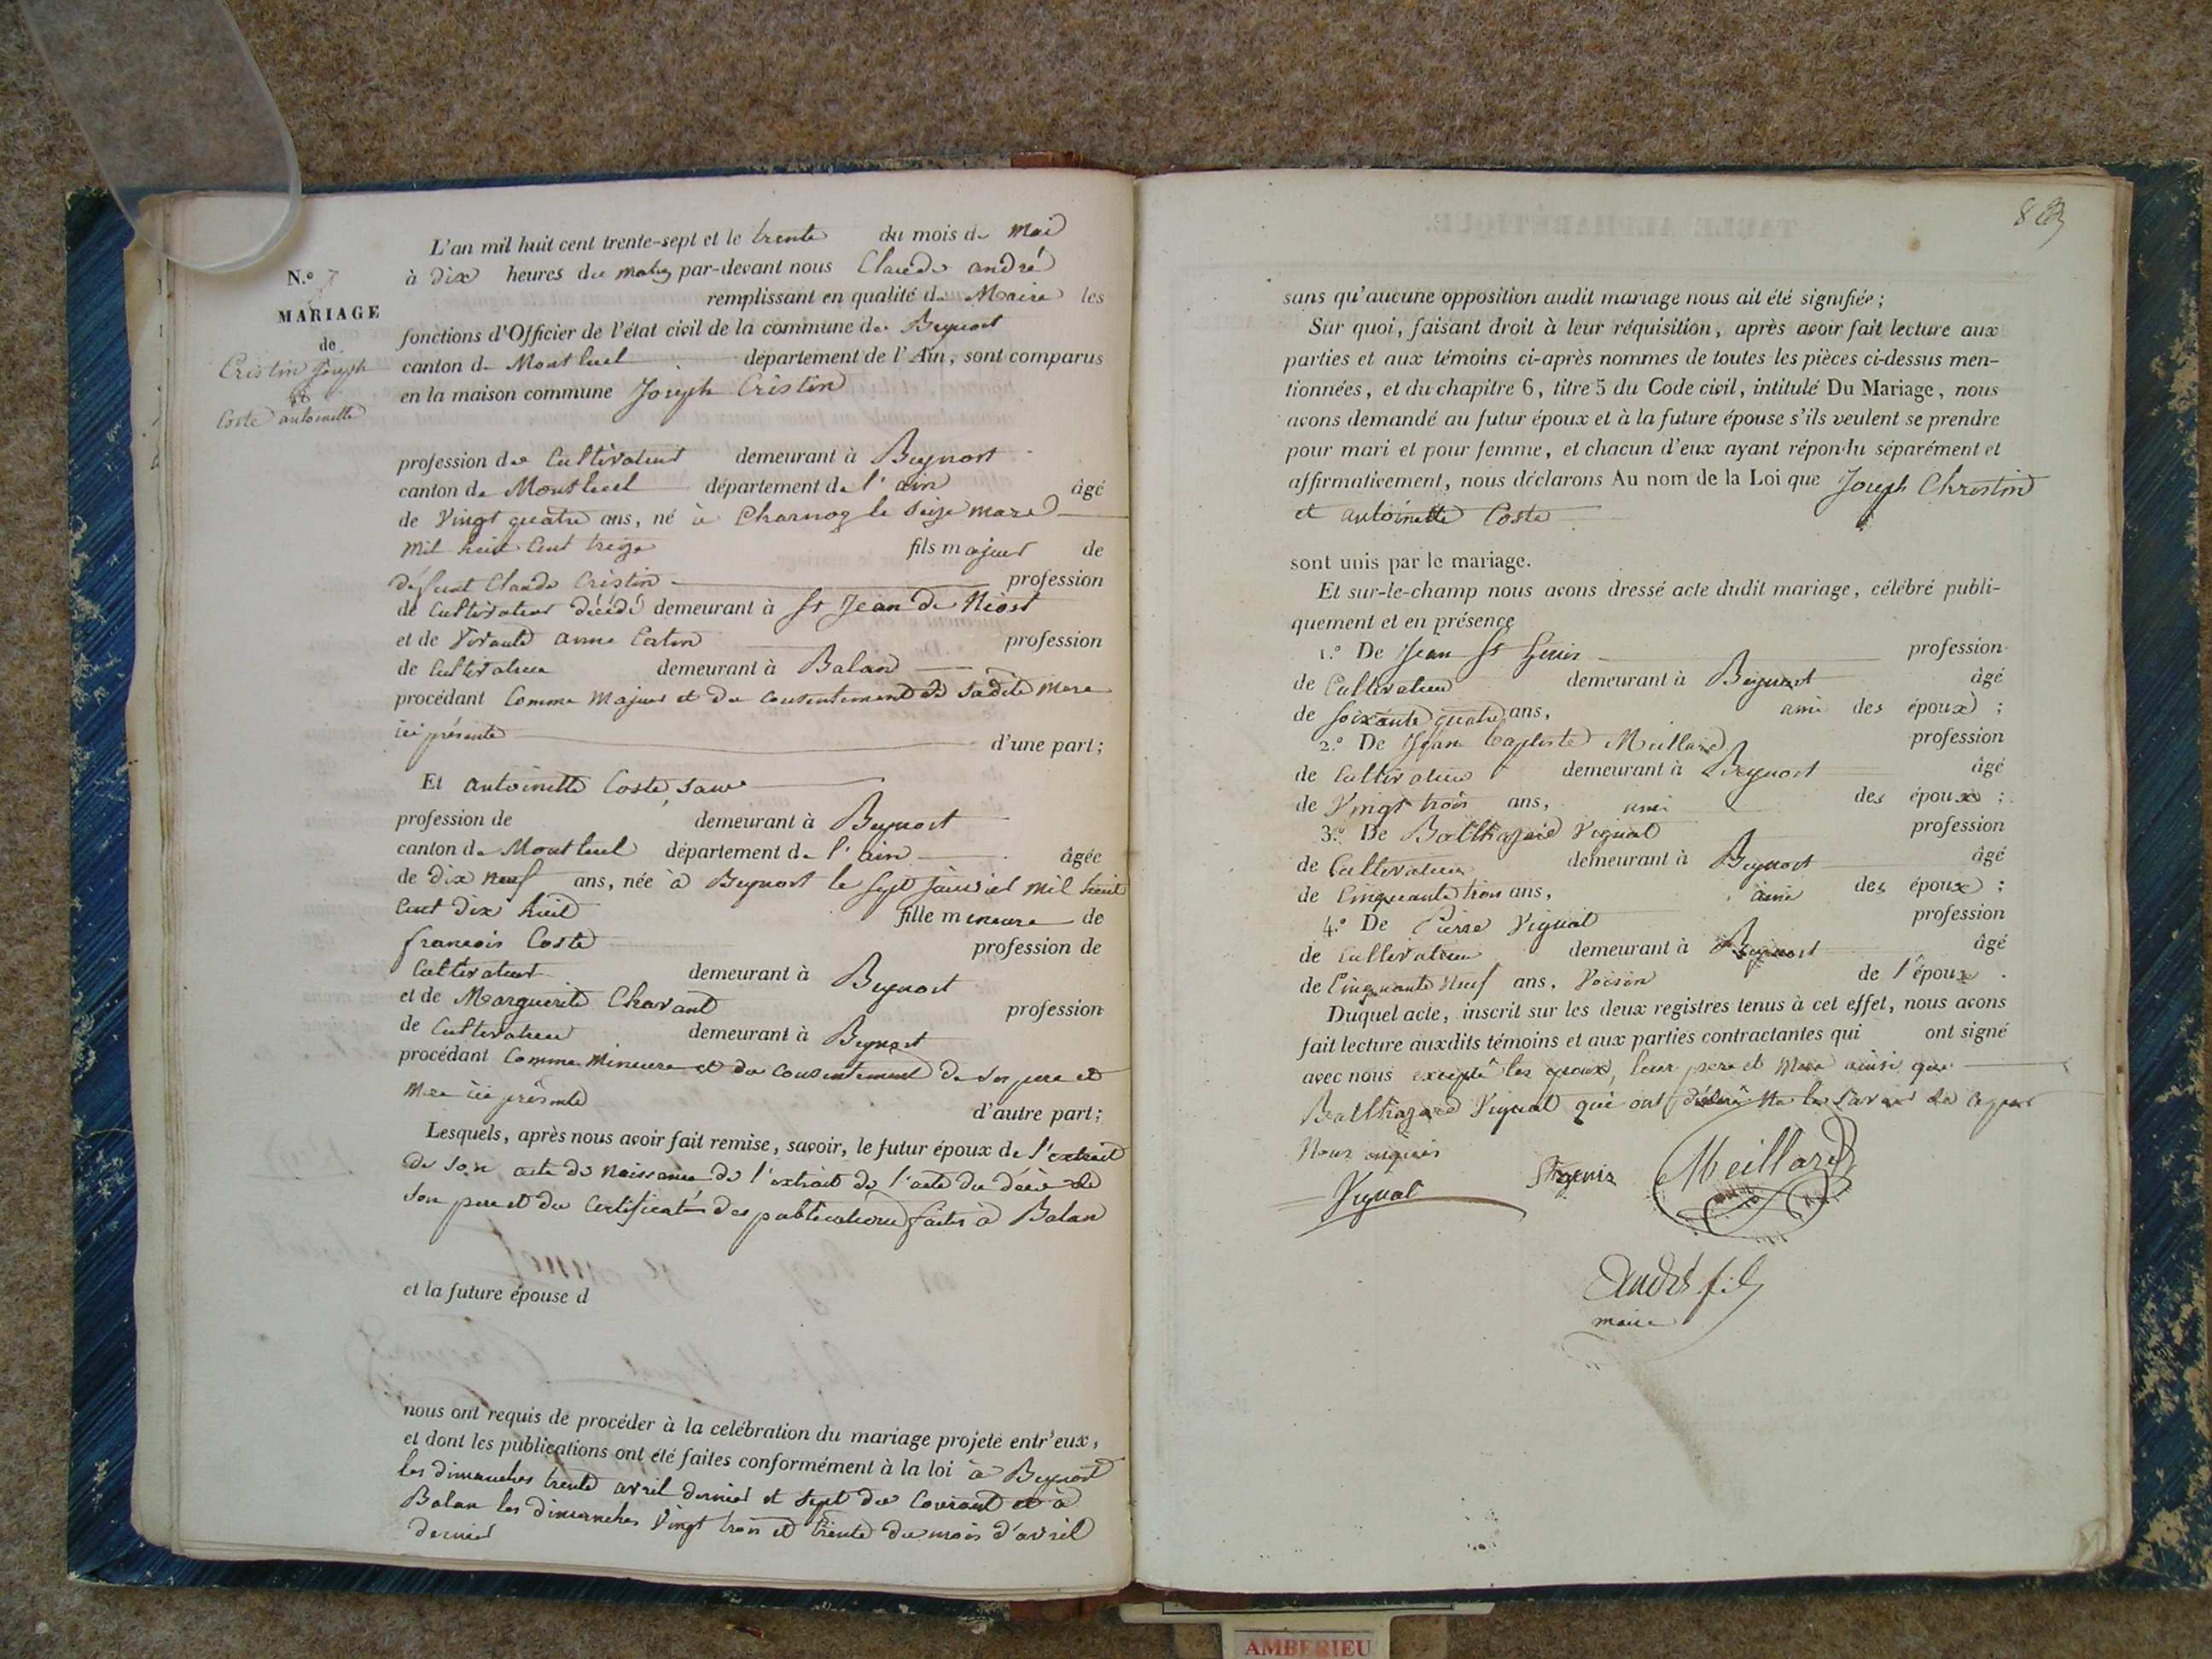 L'an mil huit cent trente-sept et le trente du mois de Mai
N.º 7
à dix heures du matin par-devant nous Claude andré
remplissant en qualité de Maire les
MARIAGE
fonctions d'Officier de l'état civil de la commune de Beynost
de
canton de Montluel département de l'Ain, sont comparus
Cristin Joseph
et
en la maison commune Joseph Cristin
Coste antoinette
profession de Cultivateur demeurant à Beynost
canton de Montluel département de l'ain âgé
de Vingt quatre ans, né à Charnoz le Seize mars
mil huit Cent treize fils majeur de
défunt Claude Cristin profession
de Cultivateur décédé demeurant à St Jean de Niost
et de Vivante anne Catin profession
de Cultivateur demeurant à Balan
procédant Comme Majeur et du Consentement de sadite mere
ici présente d'une part;
Et antoinette Coste, sans
profession de demeurant à Beynost
canton de Montluel département de l'ain âgée
de dix neuf ans, née à Beynost le sept janvier mil huit
Cent dix huit fille mineure de
françois Coste profession de
Cultivateur demeurant à Beynost
et de Marguerite Chavant profession
de Cultivateur demeurant à Beynost
procédant Comme Mineure et du Consentement de son pere et
Mere ici présente d'autre part;
Lesquels, après nous avoir fait remise, savoir, le futur époux de l'extrait
de son acte de Naissance de l'extrait de l'acte du décès de
son pere et du Certificat des publications faites à Balan
et la future épouse d
nous ont requis de procéder à la celébration du mariage projeté entr'eux,
et dont les publications ont été faites conformément à la loi à Beynost
les dimanches trente avril dernier et sept du Courant et à
Balan les dimanches Vingt trois et trente du mois d'avril
dernier
sans qu'aucune opposition audit mariage nous ait été signifiée;
Sur quoi, faisant droit à leur réquisition, après avoir fait lecture aux
parties et aux témoins ci-après nommes de toutes les pièces ci-dessus men-
tionnées, et du chapitre 6, titre 5 du Code civil, intitulé Du Mariage, nous
avons demandé au futur époux et à la future épouse s'ils veulent se prendre
pour mari et pour femme, et chacun d'eux ayant répondu séparément et
affirmativement, nous déclarons Au nom de la Loi que Joseph Christin
et antoinette Coste
sont unis par le mariage.
Et sur-le-champ nous avons dressé acte dudit mariage, célébré publi-
quement et en présence
1.º De Jean St Genis profession
de Cultivateur demeurant à Beynost âgé
de Soixante quatre ans, ami des époux;
2.º De Jean baptiste Meillard profession
de Cultivateur demeurant à Beynost âgé
de Vingt trois ans, ami des époux;
3.º De Balthazard Vignat profession
de Cultivateur demeurant à Beynost âgé
de Cinquante trois ans, ami des époux;
4.º De Pierre Vignat profession
de Cultivateur demeurant à Beynost âgé
de Cinquante Neuf ans, Voisin de l'époux.
Duquel acte, inscrit sur les deux registres tenus à cet effet, nous avons
fait lecture auxdits témoins et aux parties contractantes qui ont signé
avec nous excepté les époux, leur pere et Mere ainsi que
Balthazard Vignat qui ont déclaré Ne le savoir de ce par
Nous enquis
Vignat Stgenis Meillard
André fils
maire
AMBERIEU